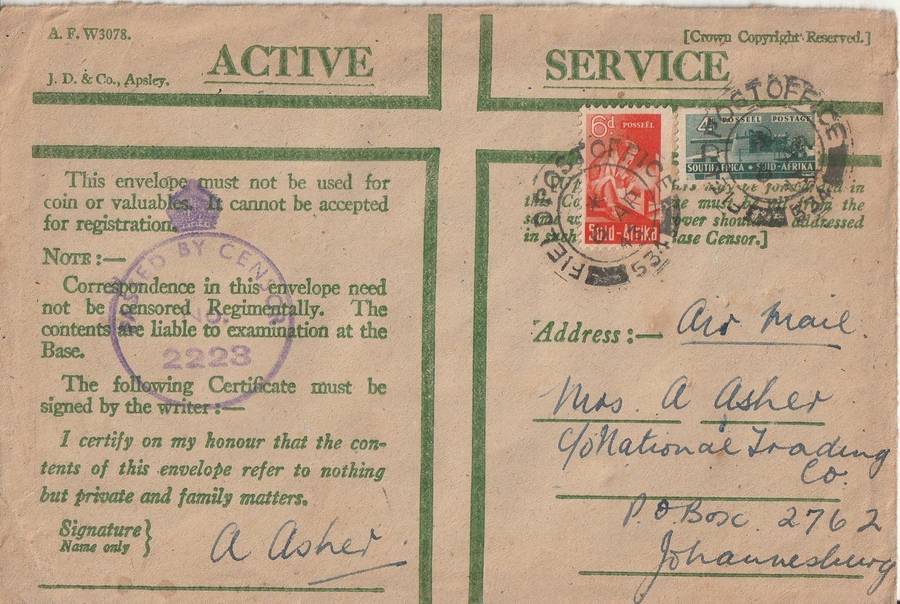 A. F. W3078.
[Crown Copyright Reserved.]
J. D. & Co., Apsley.
ACTIVE SERVICE
This envelope must not be used for
coin or valuables. It cannot be accepted
for registration.
NOTE :—
Correspondence in this envelope need
not be censored Regimentally. The
contents are liable to examination at the
Base.
The following Certificate must be
signed by the writer :—
I certify on my honour that the con-
tents of this envelope refer to nothing
but private and family matters.
Signature
Name only
A Asher
PASSED BY CENSOR
No.
2223
6d POSSEËL
Suid-Afrika
4d POSSEËL POSTAGE
SOUTH AFRICA • SUID-AFRIKA
FIELD POST OFFICE
534
FIELD POST OFFICE
may be forwarded in
this Co must be all from the
same over should addressed
in such Base Censor.]
Address :— Air Mail.
Mrs. A Asher
c/o National Trading
Co.
P.O Box. 2762
Johannesburg